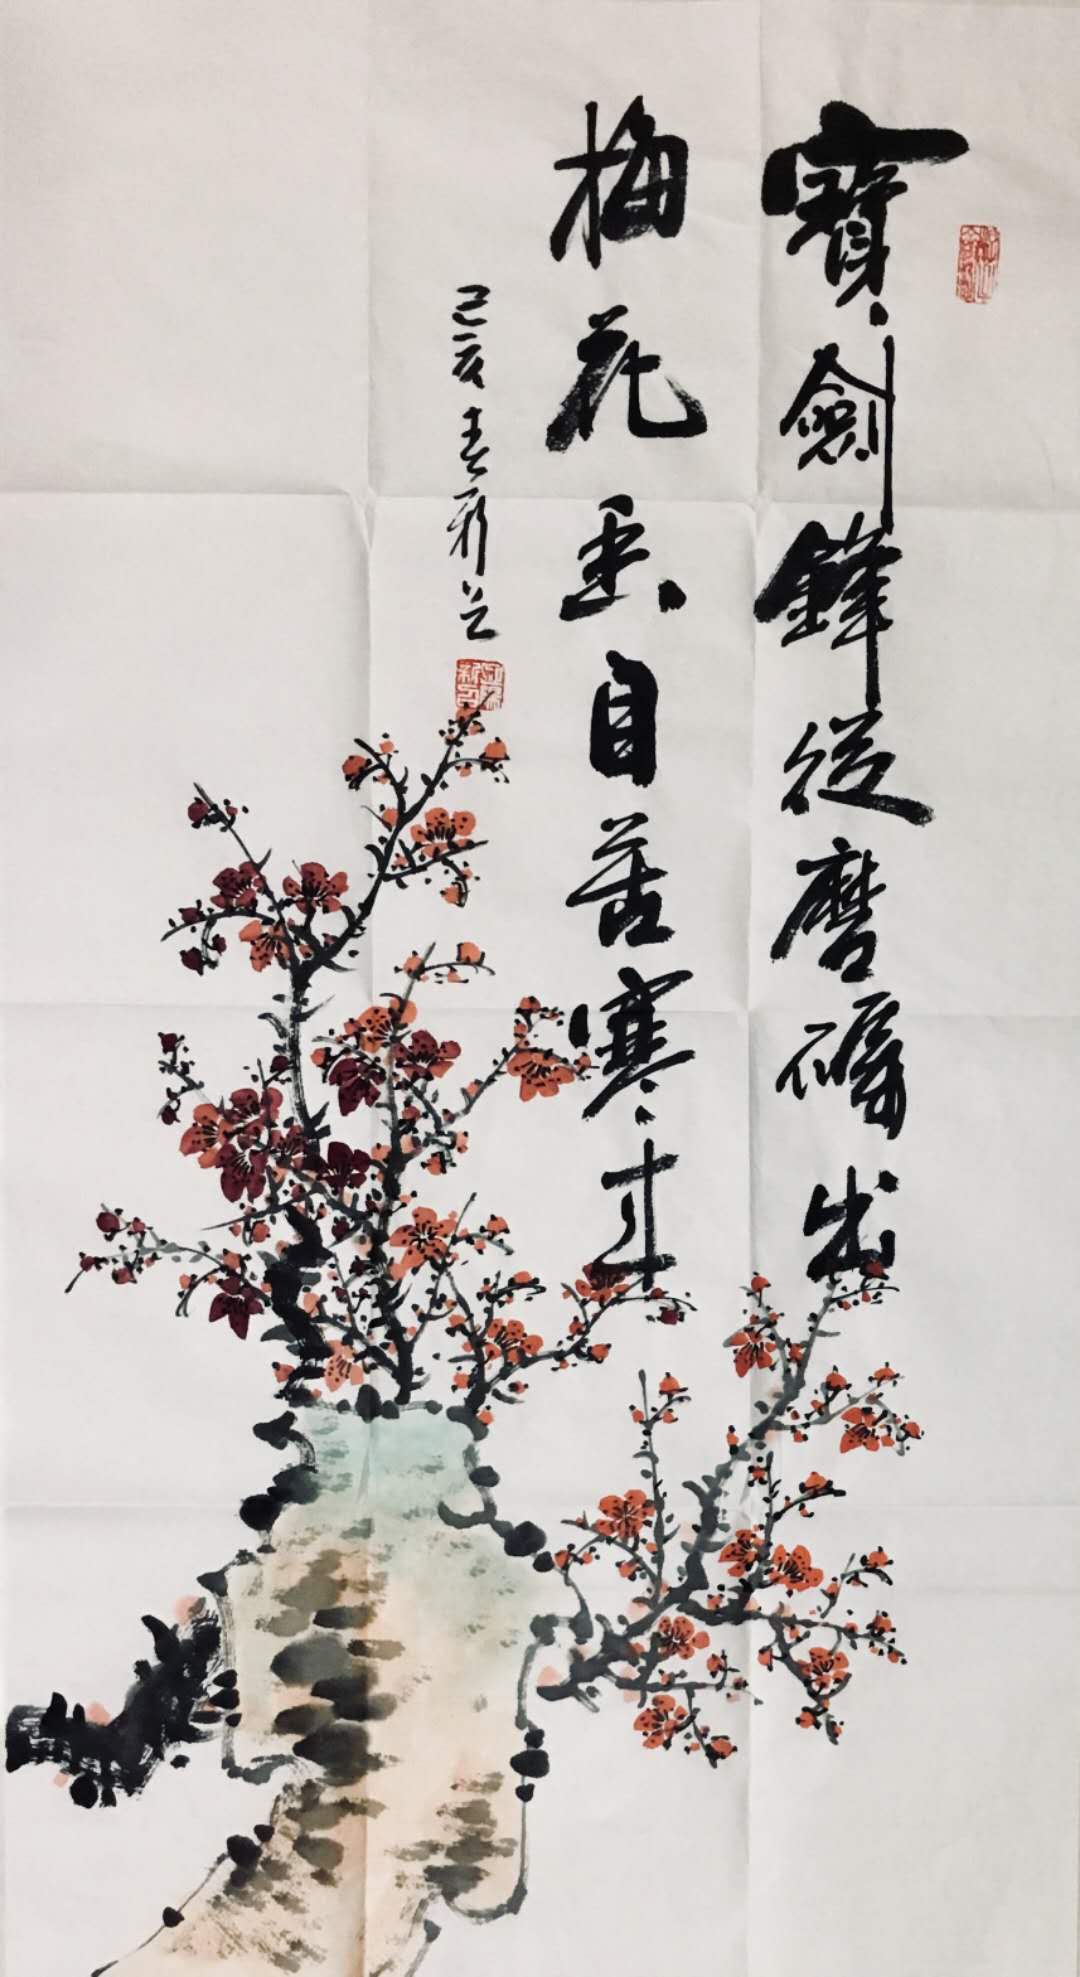 寶劍鋒從磨礪出
梅花香自苦寒來
己亥春新芝